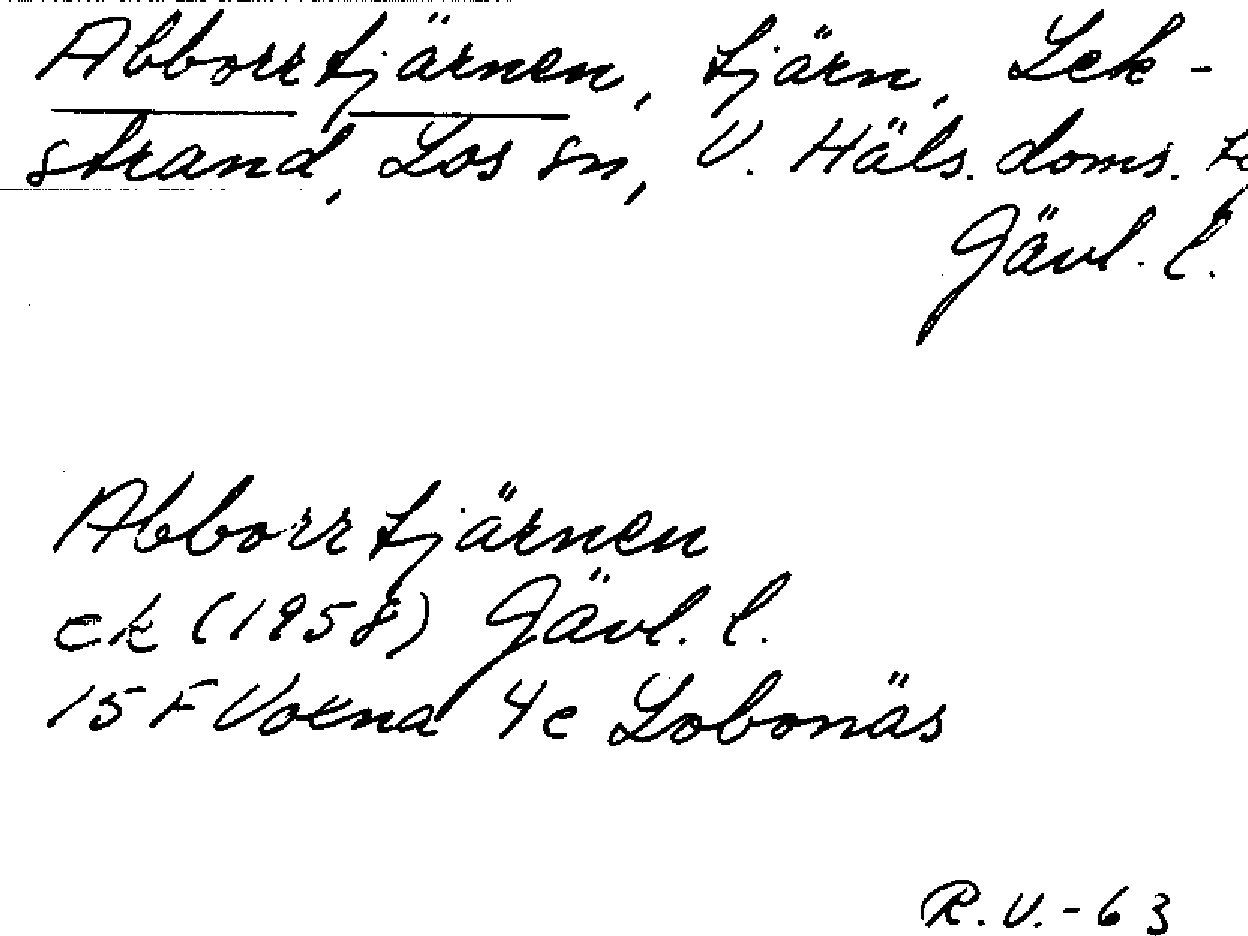 Abborrtjärnen, tjärn, Lek-
strand, Los sn, V. Häls. doms.
Gävl. l.
Abborrtjärnen
ek (1958) Gävl. l.
15 F Voxna 4c Lobonäs
R.V.-63